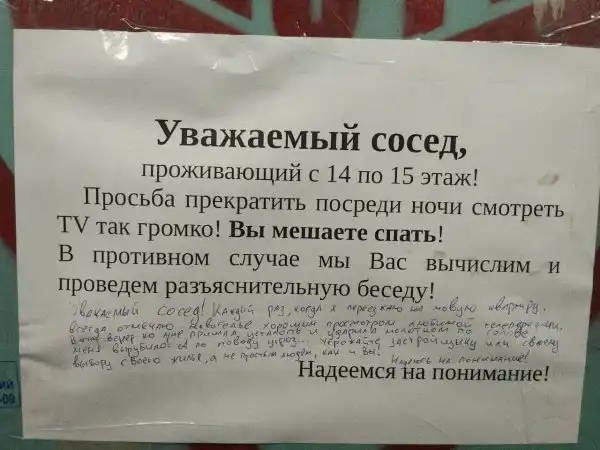 Уважаемый сосед,
проживающий с 14 по 15 этаж!
Просьба прекратить посреди ночи смотреть
TV так громко! Вы мешаете спать!
В противном случае мы Вас вычислим и
проведем разъяснительную беседу!
Уважаемый сосед! Каждый раз, когда я переезжаю на новую квартиру,
всегда отмечаю новоселье хорошим просмотром любимой телепередачи.
вечер ко мне пришла усталость и ударила молотком по голове
меня вырубило. по поводу угроз... угрожайте застройщику или своему
выбору своего жилья, а не простым людям, как и вы! Надеюсь на понимание!
Надеемся на понимание!